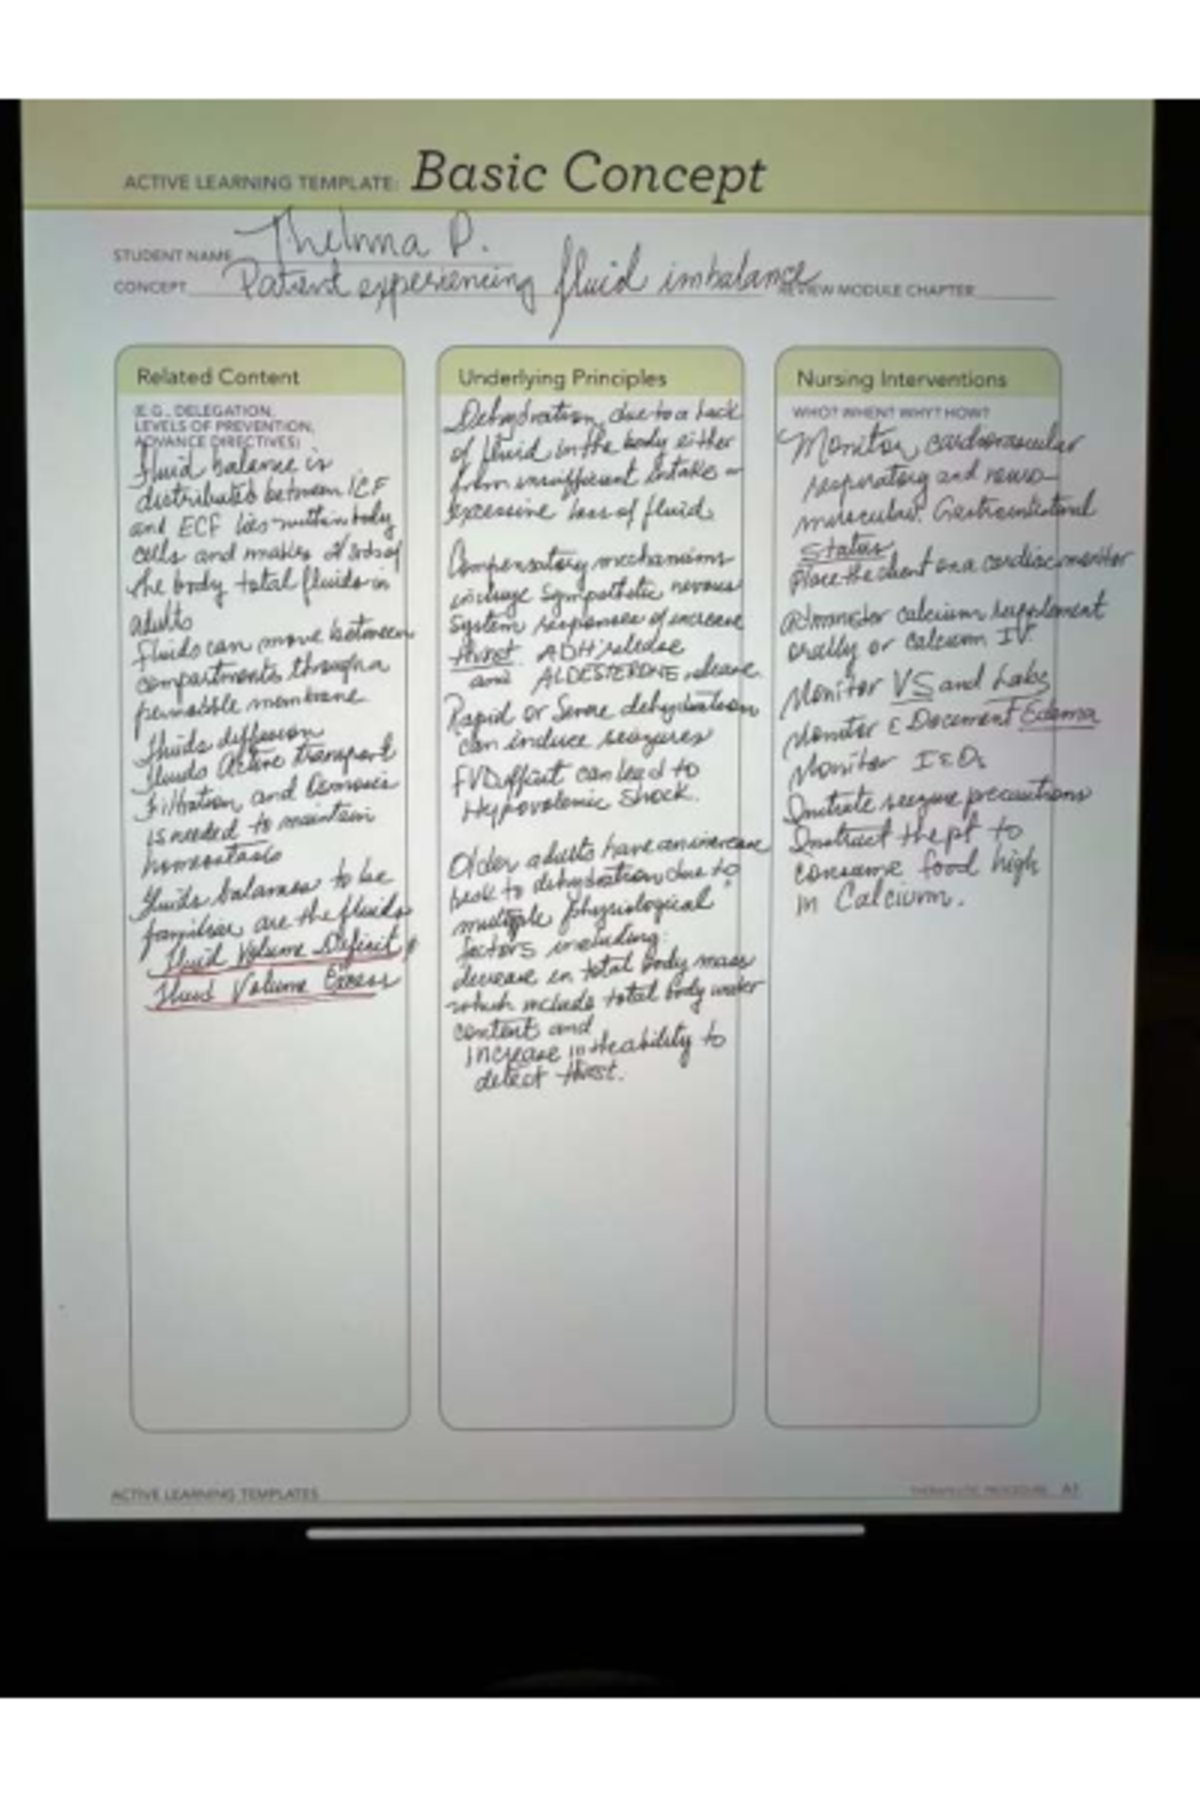 ACTIVE LEARNING TEMPLATE: Basic Concept
STUDENT NAME Thelma P.
CONCEPT Patient experiencing fluid imbalance REVIEW MODULE CHAPTER
Related Content
(E.G., DELEGATION,
LEVELS OF PREVENTION,
ADVANCE DIRECTIVES)
Fluid balance is
distributed between ICF
and ECF lies within body
cells and makes 2/3rds of
the body total fluids in
adults
Fluids can move between
compartments through a
permeable membrane
fluids diffusion
fluids Active transport
Filtration and Osmosis
is needed to maintain
homeostasis
fluids balances to be
familiar are the fluids
Fluid Volume Deficit,
Fluid Volume Excess
Underlying Principles
Dehydration, due to a lack
of fluid in the body either
from insufficient intake or
excessive loss of fluid.
Compensatory mechanisms
include Sympathetic nervous
System responses of increase
thirst ADH release
and ALDESTERONE release.
Rapid or Severe dehydration
can induce seizures
FVDeficit can lead to
Hypovolemic Shock.
Older adults have an increase
risk to dehydration due to
multiple physiological
factors including:
decrease in total body mass
which include total body water
content and
increase in the ability to
detect thirst.
Nursing Interventions
WHO? WHEN? WHY? HOW?
Monitor cardiovascular
respiratory and neuro-
muscular. Gastrointestinal
Status
Place the client on a cardiac monitor
administer calcium supplement
orally or calcium IV
Monitor VS and Labs
Monitor & Document Edema
Monitor I&Os
Initiate seizure precautions
Instruct the pt to
consume food high
in Calcium.
ACTIVE LEARNING TEMPLATES
THERAPEUTIC PROCEDURE A1